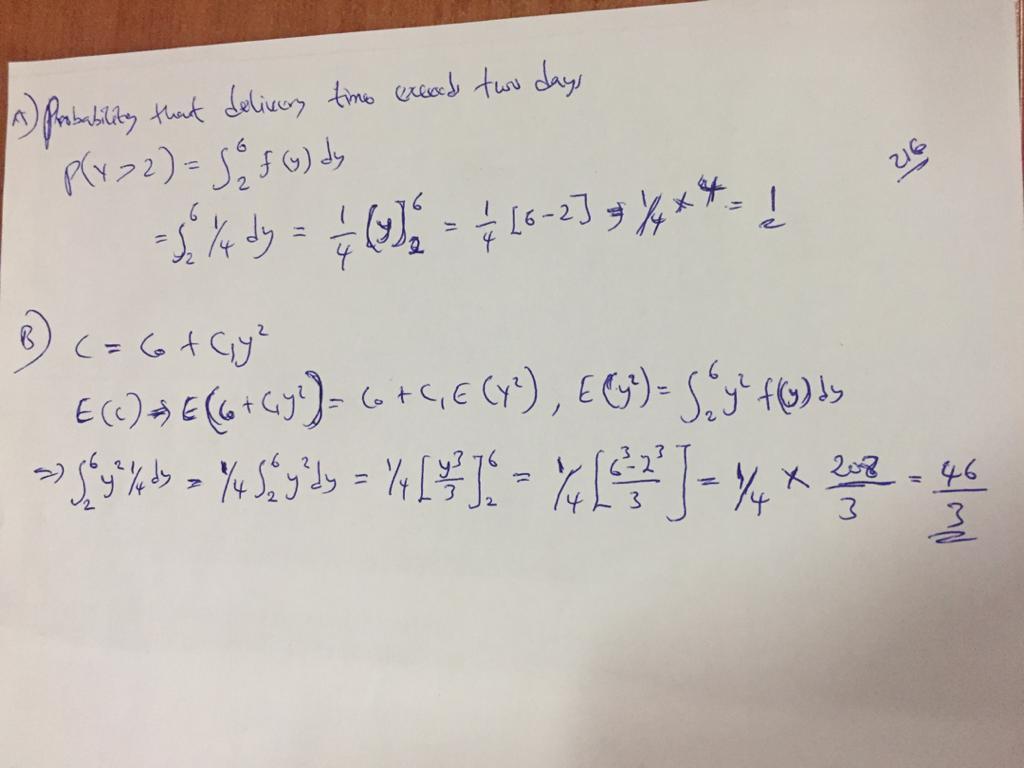 A) Probability that delivery time exceeds two days
P(Y > 2) = ∫₂⁶ f(y) dy
216
= ∫₂⁶ 1/4 dy = 1/4 [y]₂⁶ = 1/4 [6-2] ⇒ 1/4 × 4 = 1
B) C = C₀ + C₁y²
E(C) ⇒ E(C₀ + C₁y²) = C₀ + C₁E(Y²), E(y²) = ∫₂⁶ y² f(y) dy
⇒ ∫₂⁶ y² 1/4 dy = 1/4 ∫₂⁶ y² dy = 1/4 [y³/3]₂⁶ = 1/4 [6³-2³/3] = 1/4 × 208/3 = 46/3